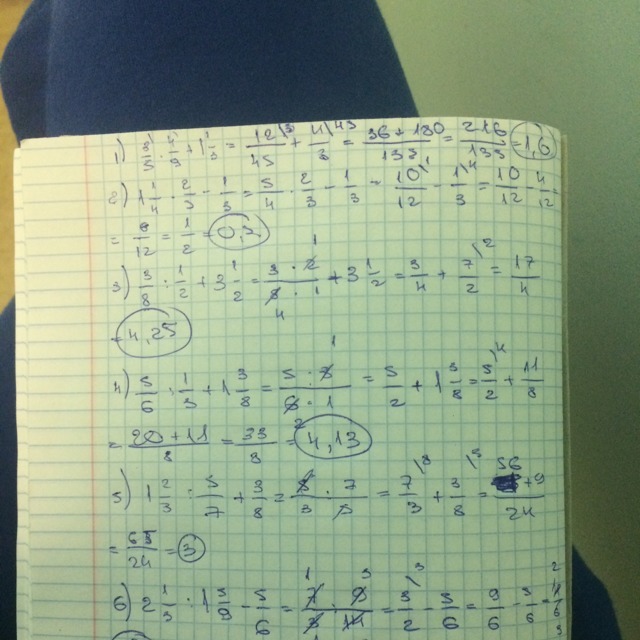 1) 3/5 · 4/9 + 1 1/3 = 12/45 + 4/3 = 36+180/135 = 216/135 = 1,6
2) 1 1/4 · 2/3 - 1/3 = 5/4 · 2/3 - 1/3 = 10/12 - 1/3 = 10/12 - 4/12
= 6/12 = 1/2 = 0,5
3) 3/8 : 1/2 + 3 1/2 = 3 · 2/8 · 1 + 3 1/2 = 3/4 + 7/2 = 17/4
= 4,25
4) 5/6 : 1/3 + 1 3/8 = 5 · 3/6 · 1 = 5/2 + 1 3/8 = 5/2 + 11/8
= 20+11/8 = 33/8 = 4,13
5) 1 2/3 : 5/7 + 3/8 = 5/3 · 7/5 = 7/3 + 3/8 = 56+9/24
= 65/24 = 3
6) 2 1/3 : 1 5/9 - 5/6 = 7/3 · 9/14 = 3/2 - 5/6 = 9/6 - 5/6